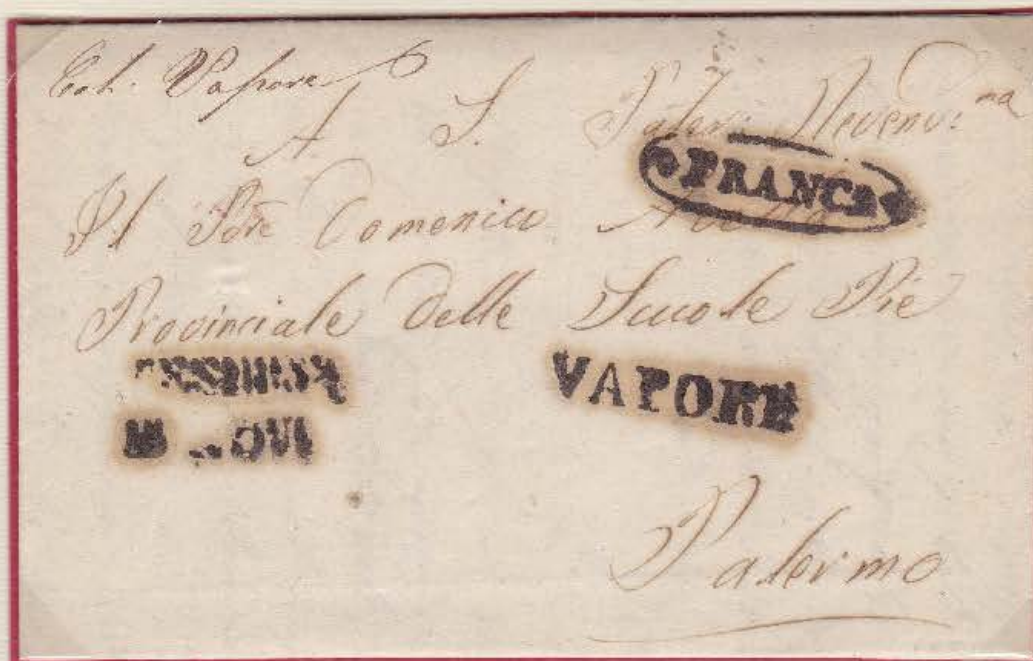 Col. Vapore
A. S. Patern. Reverend.ma
FRANCA
Il Pdre Domenico
Provinciale delle Scuole Pie
VAPORE
Palermo